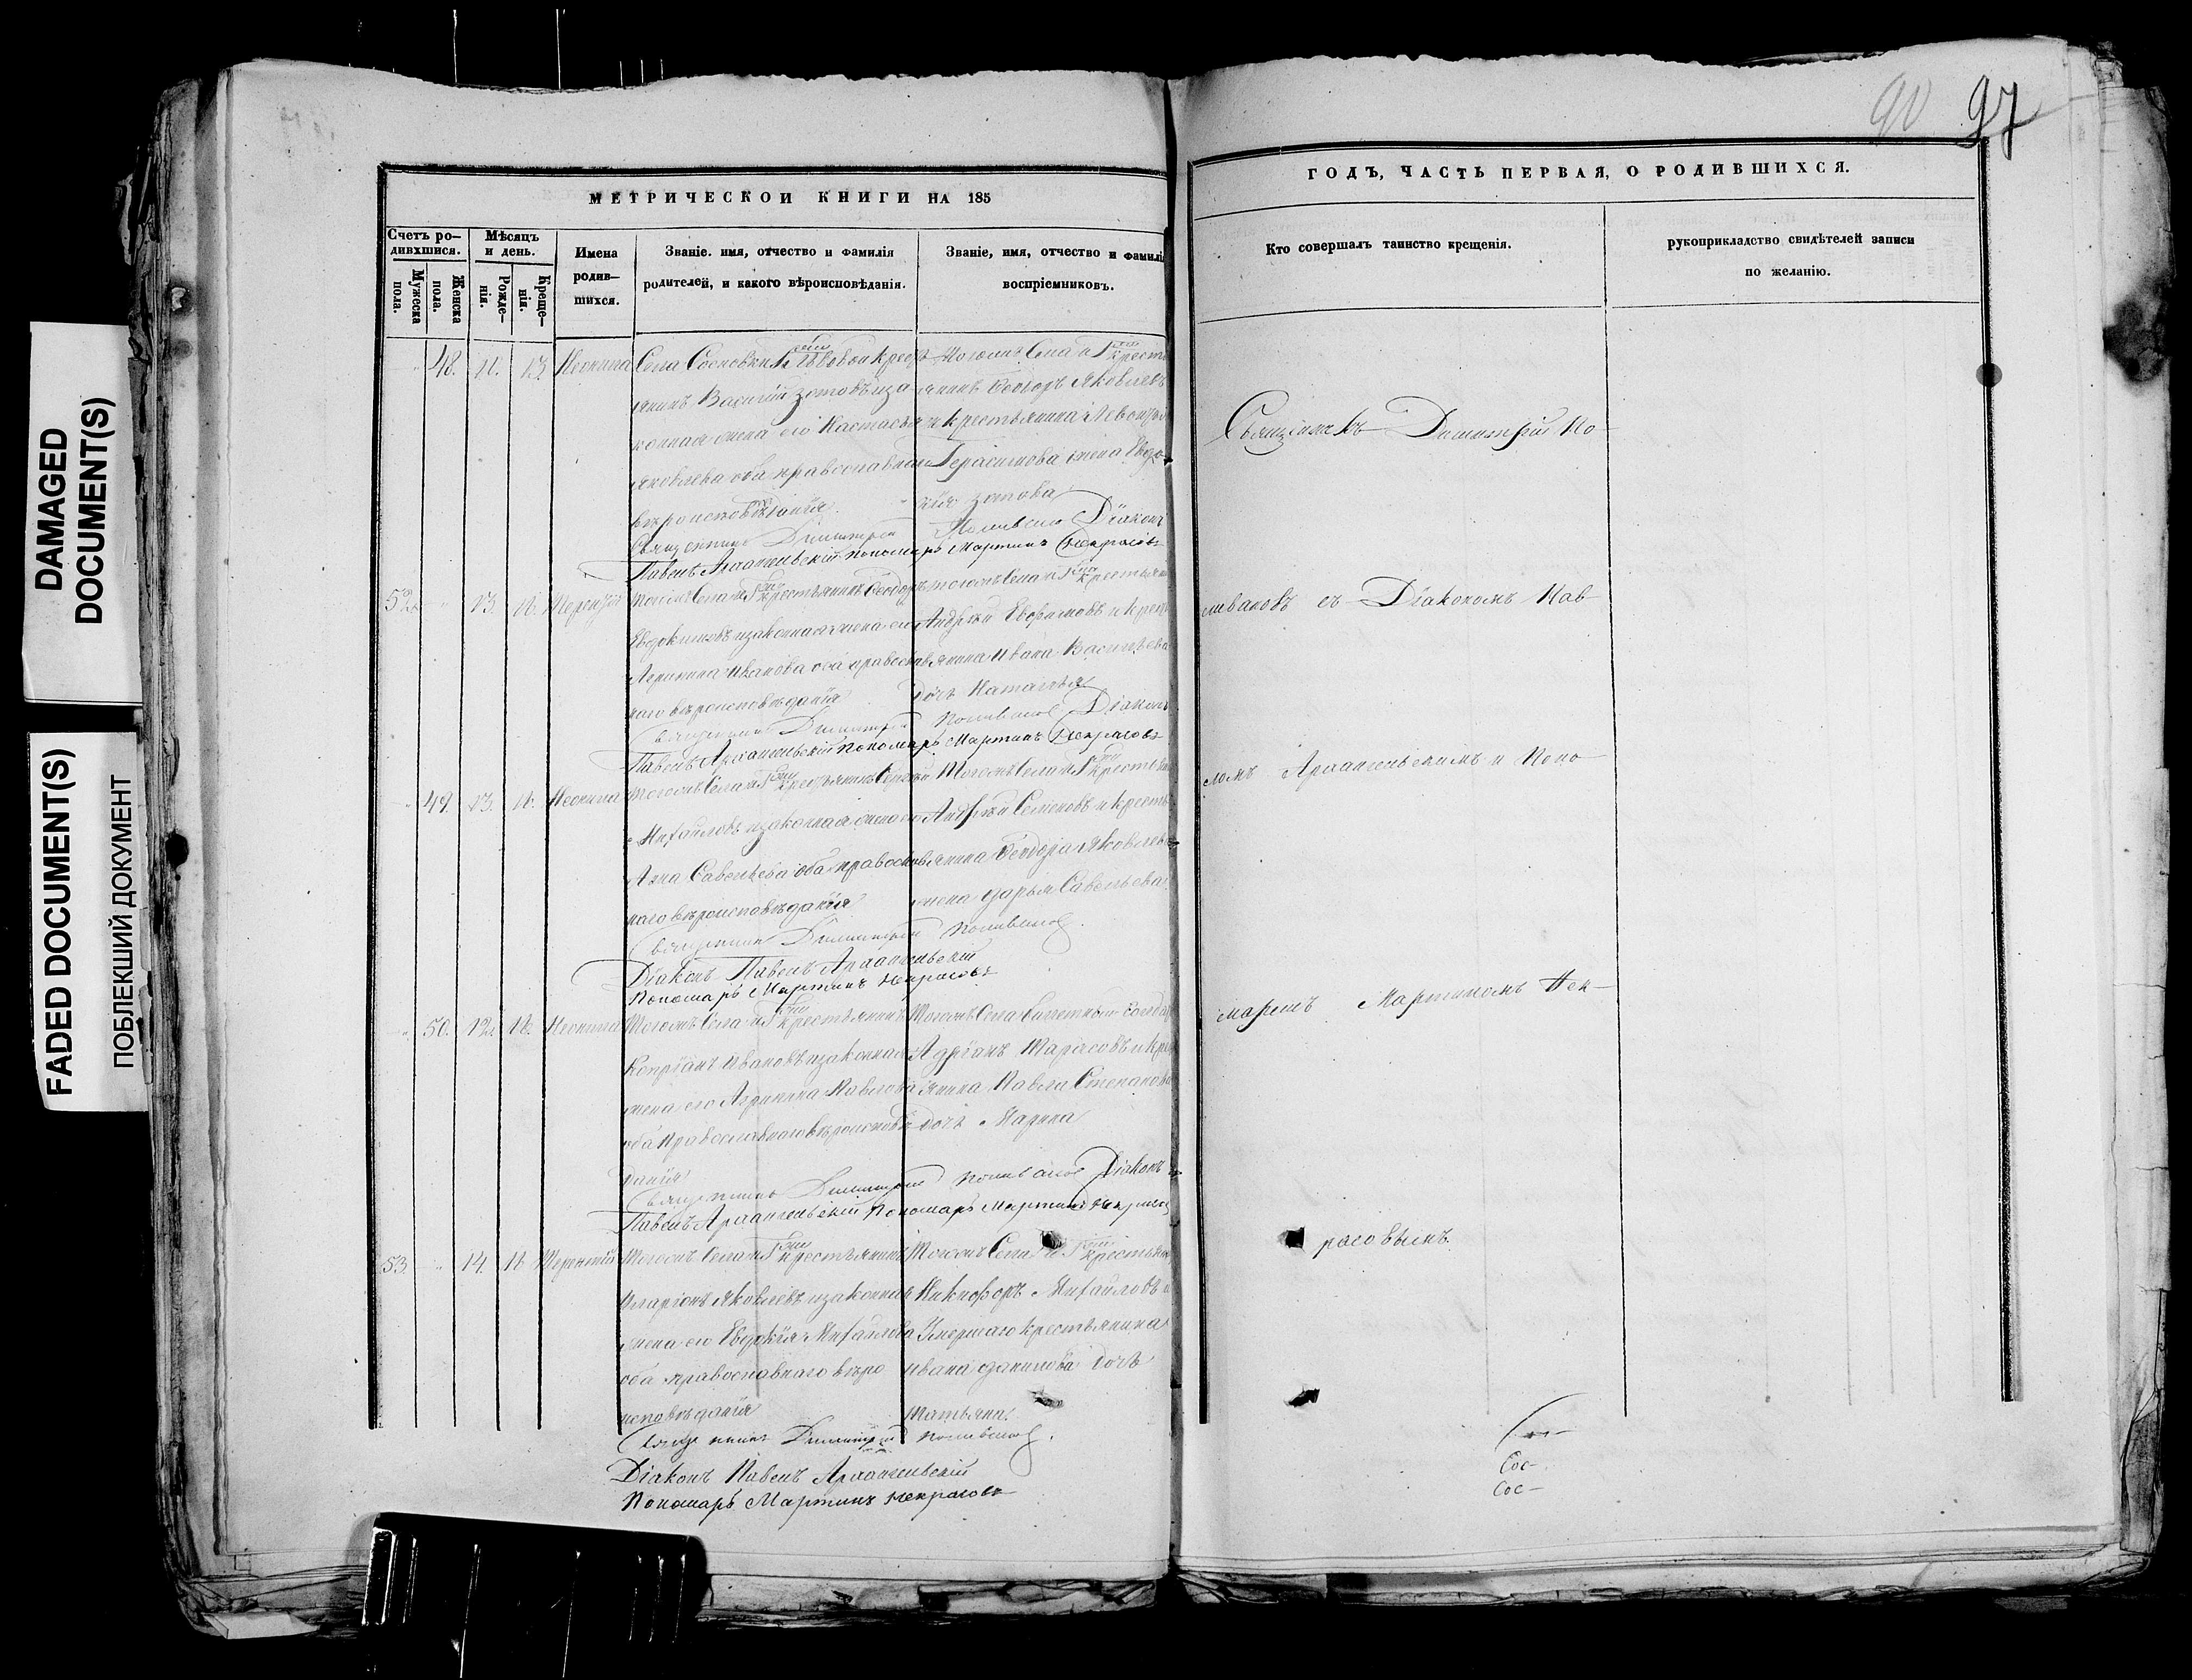 DAMAGED
DOCUMENT(S)
FADED DOCUMENT(S)
ПОБЛЕКШИЙ ДОКУМЕНТ
90 97
МЕТРИЧЕСКОИ КНИГИ НА 185
ГОДЪ, ЧАСТЬ ПЕРВАЯ, О РОДИВШИХСЯ.
Счетъ ро-
дивхшися.
Мужеска
пола.
Женска
пола.
Мѣсяцъ
и день.
Рожде-
нія.
Креще-
нія.
Имена
родив-
шихся.
Званіе. имя, отчество и фамилія
родителей, и какого вѣроисповѣданія.
Званіе, имя, отчество и фамилі
воспріемниковъ.
Кто совершалъ таинство крещенія.
рукоприкладство свидѣтелей записи
по желанію.
48. 11. 13. Неонила Села Сосновки
янинъ Василій Зотовъ иза
конная жена его Настасья
Яковлева оба православнаго
вѣроисповѣданія
Тогожъ Села и Г крестъ
янинъ Ѳеодоръ Яковлевъ
и крестьянина
Герасимова жена Евдо-
кия Зотова
Священникъ Димитрій Поливановъ Діаконъ
Павелъ Архангельскій пономарь Мартинъ Некрасовъ
52. 13. 18. Терентій Тогожъ Села и Г крестьянинъ Ѳеодоръ
Евдокимовъ изаконная жена его
Агрипина Иванова оба православ
наго вѣроисповѣданія
тогожъ Села и Г крестьян
Андрей Ефремовъ и крест
янина Ивана Васильева
дочь Наталья
Священникъ Димитрій Поливановъ Діаконъ
Павелъ Архангельскій пономарь Мартинъ Некрасовъ
49. 13. 18. Неонила Тогожъ Села и Г крестьянинъ Сергѣй
Михайловъ изаконная жена его
Анна Савельева оба православ
наго вѣроисповѣданія
Тогожъ Села и Г крестьян
Андрей Семеновъ и кресть
янина Ѳеодора Яковлева
жена Дарья Савельева
Священникъ Димитрій Поливановъ
Діаконъ Павелъ Архангельскій
Пономарь Мартинъ Некрасовъ
50. 12. 18. Неонила Тогожъ Села и Г крестьянинъ
Копріанъ Ивановъ изаконная
жена его Агрипина Павлова
оба православнаго вѣроисповѣ
данія
Тогожъ Села билетный солда
Адріанъ Тарасовъ и крес
янина Павла Степанова
дочь Марина
Священникъ Димитрій Поливановъ Діаконъ
Павелъ Архангельскій Пономарь Мартинъ Некрасов
53. 14. 18. Терентій Тогожъ Села и Г крестьянинъ
Иларіонъ Яковлевъ изаконная
жена его Евдокія Михайлова
оба православнаго вѣро
исповѣданія
Тогожъ Села и Г крестьян
Никифоръ Михайловъ и
Умершаго крестьянина
Ивана Данилова дочь
Татьяна.
Священникъ Димитрій Поливановъ.
Діаконъ Павелъ Архангельскій
Пономарь Мартинъ Некрасовъ
Священникъ Димитрій По-
ливановъ съ Діакономъ Пав-
ломъ Архангельскимъ и Поно-
маремъ Мартиномъ Нек-
расовымъ.
Сос-
Сос-